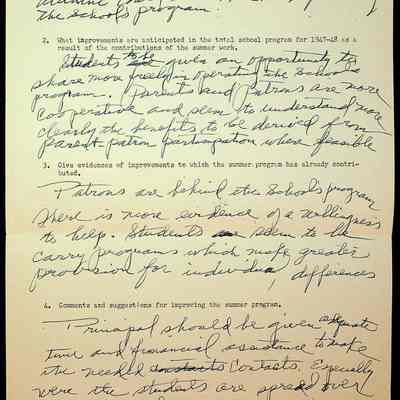 the School's program.
2. What improvements are anticipated in the total school program for 1947-48 as a
result of the contributions of the summer work.
Students to be given an opportunity to
share more freely in operating the School's
program. Parents and Patrons are more
cooperative and seem to understand more
clearly the benefits to be derived from
parent-patron participation where feasible
3. Give evidences of improvements to which the summer program has already contri-
buted.
Patrons are behind the School's program
There is more evidence of a willingness
to help. Students seem to be
carry programs which make greater
provision for individual differences
4. Comments and suggestions for improving the summer program.
Principal should be given adequate
time and financial assistance to make
the needed contacts. Especially
were the students are spread over